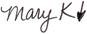 Mary K